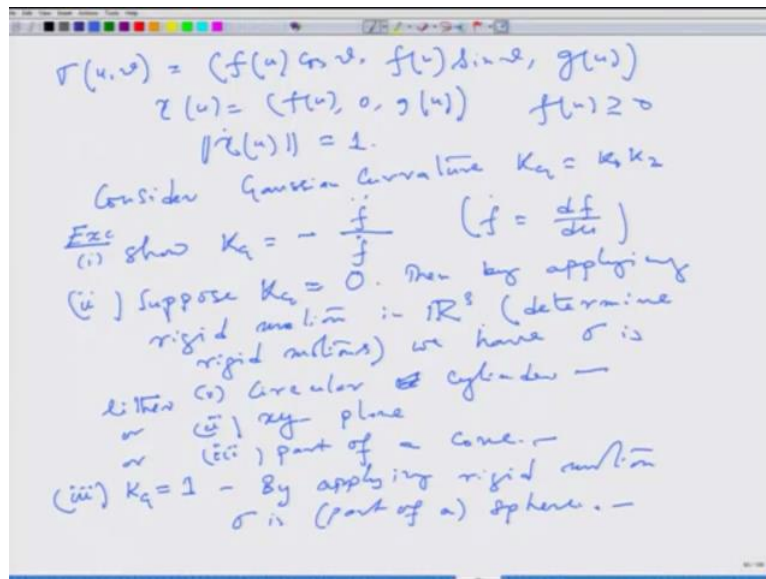 σ(u,v) = (f(u) cos v, f(u) sin v, g(u))
γ(u) = (f(u), 0, g(u)) f(u) ≥ 0
||γ̇(u)|| = 1.
Consider Gaussian Curvature K_G = K_1 K_2
Exc
(i) show K_G = - f̈/f (ḟ = df/du)
(ii) Suppose K_G = 0. Then by applying
rigid motion in ℝ³ (determine
rigid motions) we have σ is
either (i) Circular cylinder —
or (ii) xy plane
or (iii) part of a cone. —
(iii) K_G = 1 - By applying rigid motion
σ is (part of a) sphere. —